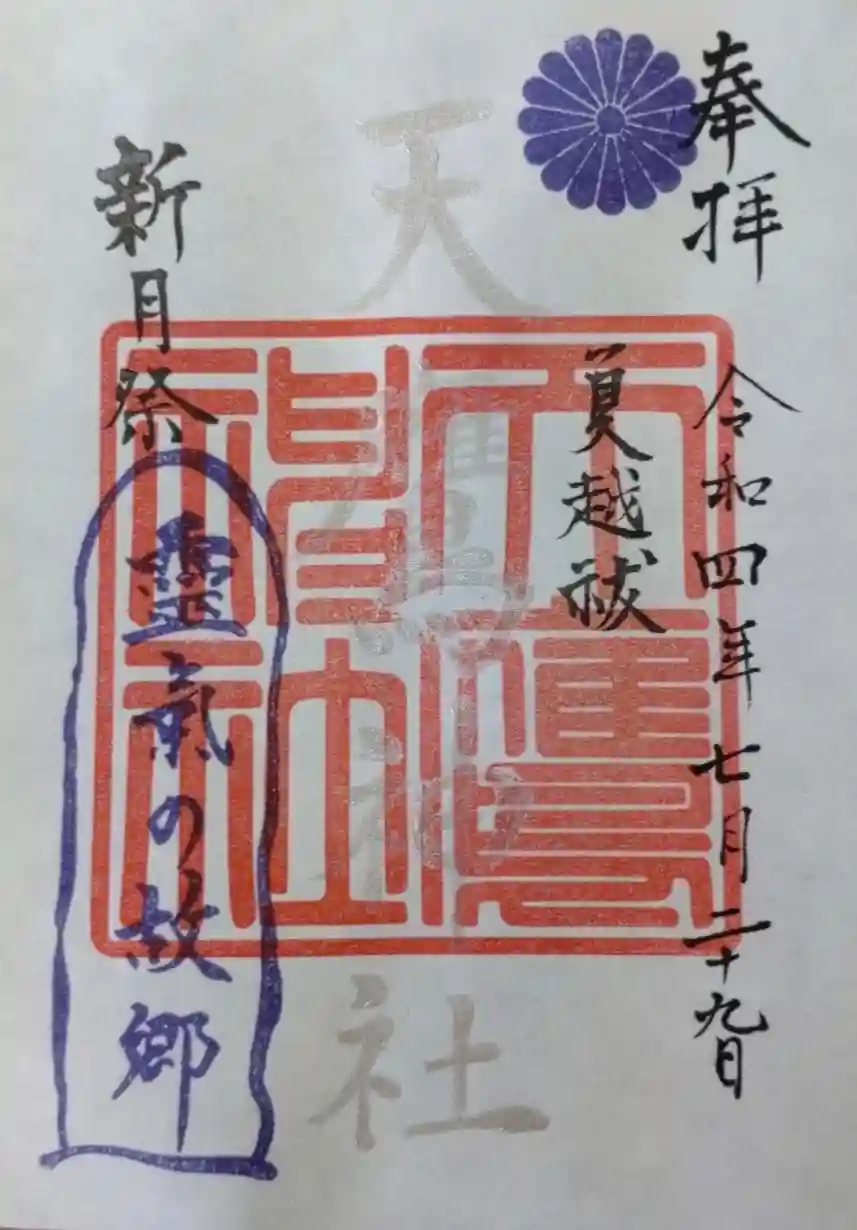 奉拝
令和四年七月二十九日
夏越祓
天鷹神社
天鷹神社
新月祭
靈氣の故郷